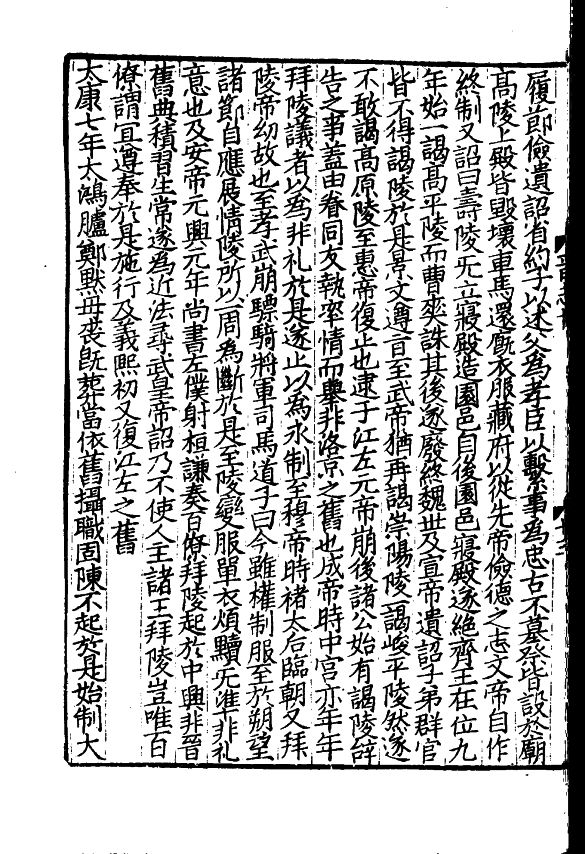 履節儉遺詔省約子以述父為孝臣以繫事為忠古不墓祭皆設於廟
高陵上殿皆毀壞車馬還廐衣服藏府以從先帝儉德之志文帝自作
終制又詔曰壽陵无立寢殿造園邑自後園邑寢殿遂絕齊王在位九
年始一謁高平陵而曹爽誅其後遂廢終魏世及宣帝遺詔子弟群官
皆不得謁陵於是景文遵旨至武帝猶再謁崇陽陵一謁峻平陵然遂
不敢謁高原陵至惠帝復止也逮于江左元帝崩後諸公始有謁陵辭
告之事蓋由眷同友執率情而舉非洛京之舊也成帝時中宮亦年年
拜陵議者以為非礼於是遂止以為永制至穆帝時褚太后臨朝又拜
陵帝幼故也至孝武崩驃騎將軍司馬道子曰今雖權制服至於朔望
諸節自應展情陵所以一周為斷於是至陵變服單衣煩黷无准非礼
意也及安帝元興元年尚書左僕射桓謙奏百僚拜陵起於中興非晉
舊典積習生常遂為近法尋武皇帝詔乃不使人主諸王拜陵豈唯百
僚謂宜遵奉於是施行及義熙初又復江左之舊
太康七年太鴻臚鄭默母喪旣葬當依舊攝職固陳不起於是始制大